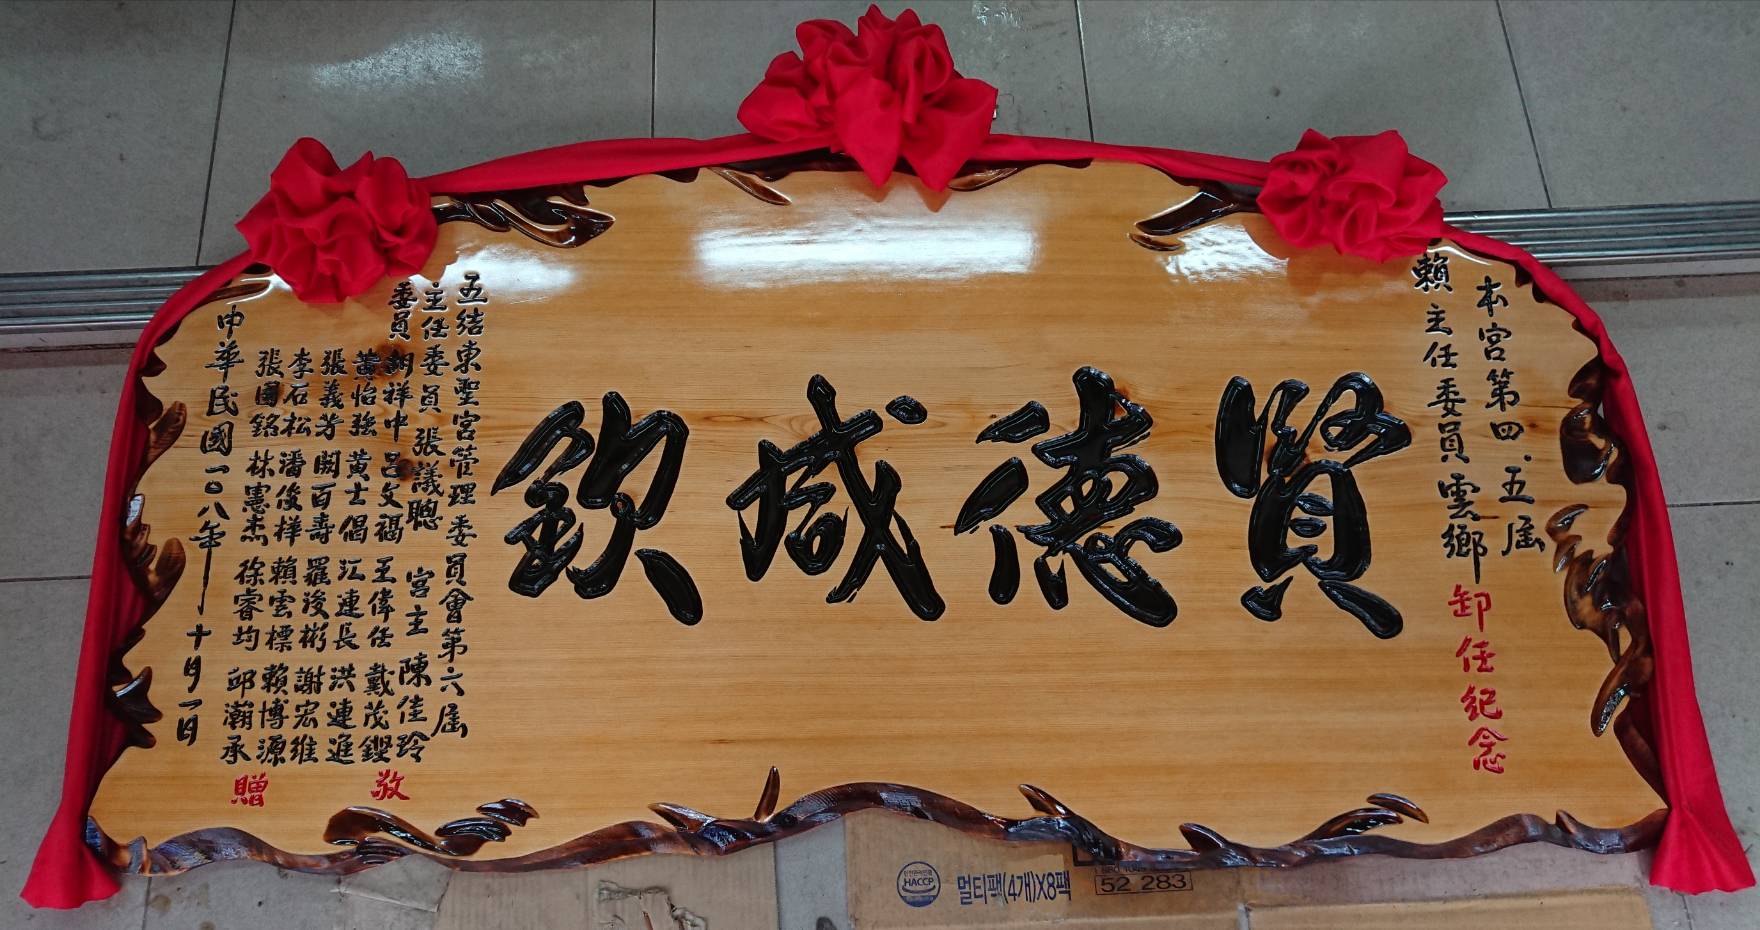 本宮第四.五屆
賴主任委員雲鄉卸任紀念
賢德咸欽
五結東聖宮管理委員會第六屆
主任委員 張議聰 宮主 陳佳玲
委員 胡祥中 呂文福 王偉任 戴茂鏗 敬
黃怡強 黃士倡 江連長 洪連進
張義芳 闕百壽 羅浚彬 謝宏維
李石松 潘俊樺 賴雲標 賴博源
張國銘 林憲杰 徐睿均 邱瀚承 贈
中華民國一〇八年十月一日
HACCP
멀티팩(4개)X8팩
52 283